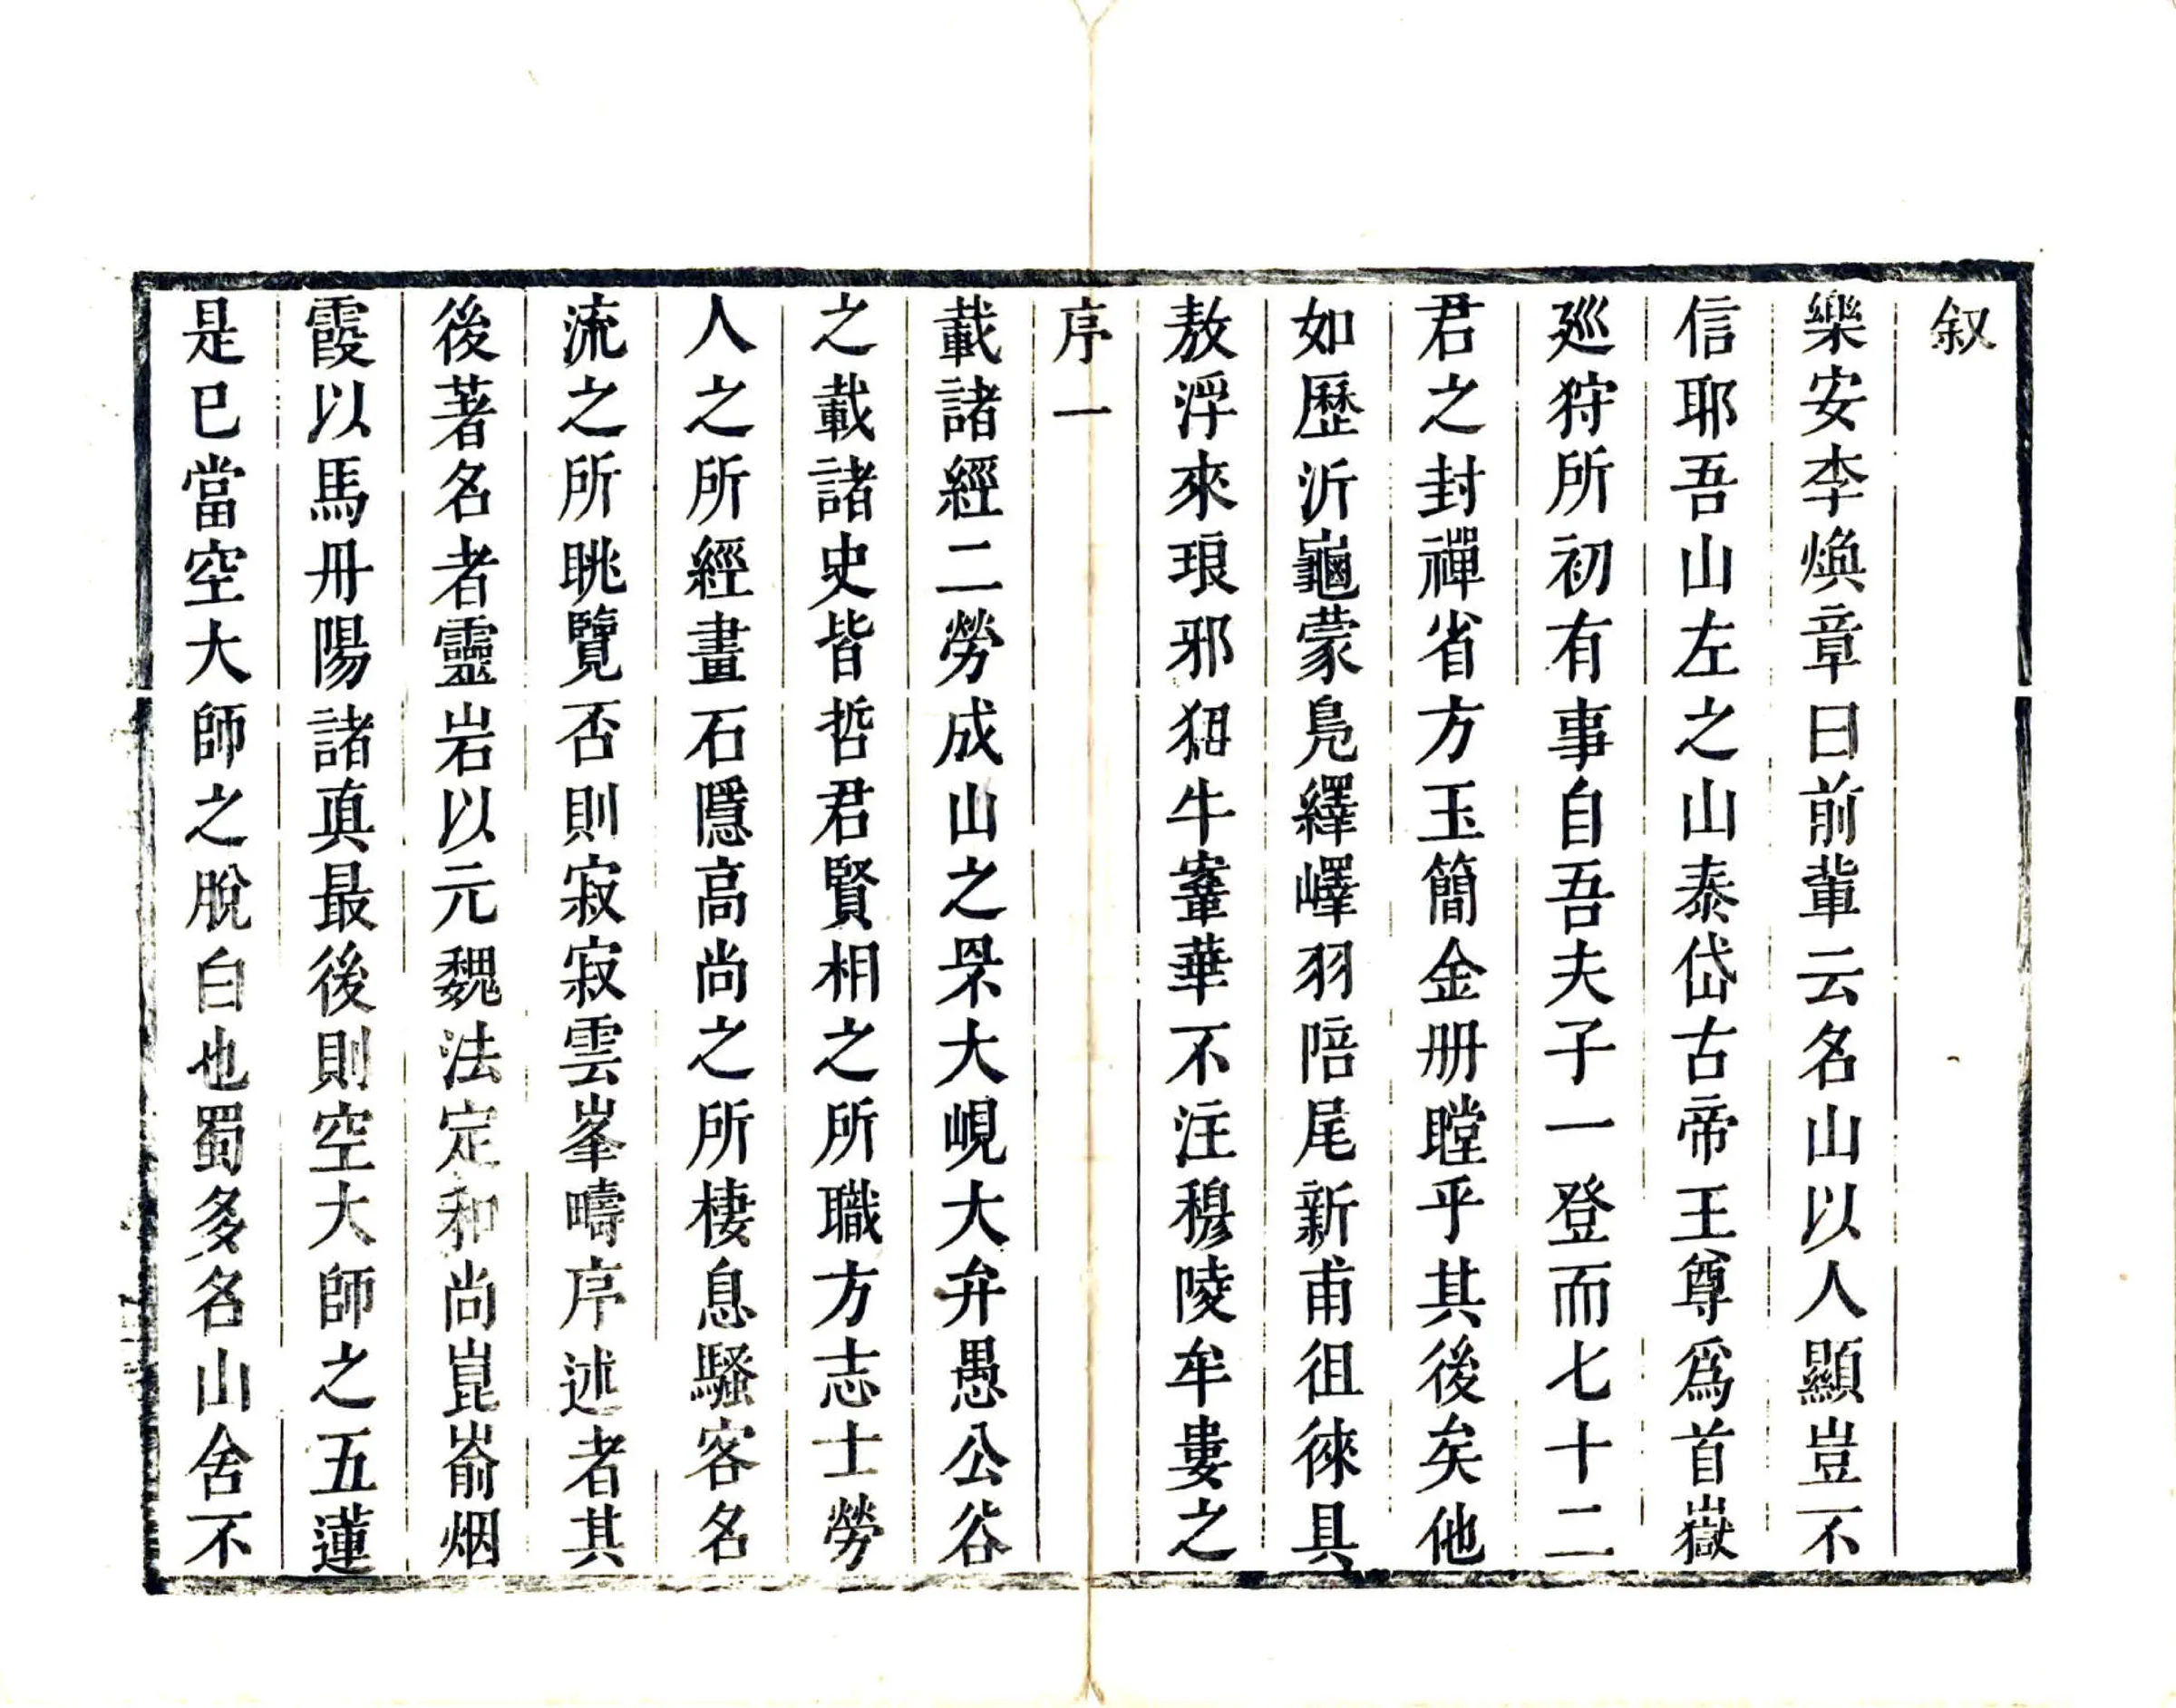 叙
樂安李煥章曰前輩云名山以人顯豈不
信耶吾山左之山泰岱古帝王尊爲首嶽
廵狩所初有事自吾夫子一登而七十二
君之封禪省方玉簡金册瞠乎其後矣他
如歷沂龜蒙鳧繹嶧羽陪尾新甫徂徠具
敖浮來琅邪峱牛鞌華不注穆陵牟婁之
序一
載諸經二勞成山之罘大峴大弁愚公谷
之載諸史皆哲君賢相之所職方志士勞
人之所經畫石隱高尚之所棲息騷客名
流之所眺覽否則寂寂雲峯疇序述者其
後著名者靈岩以元魏法定和尚崑嵛烟
霞以馬丹陽諸眞最後則空大師之五蓮
是已當空大師之脫白也蜀多名山舍不